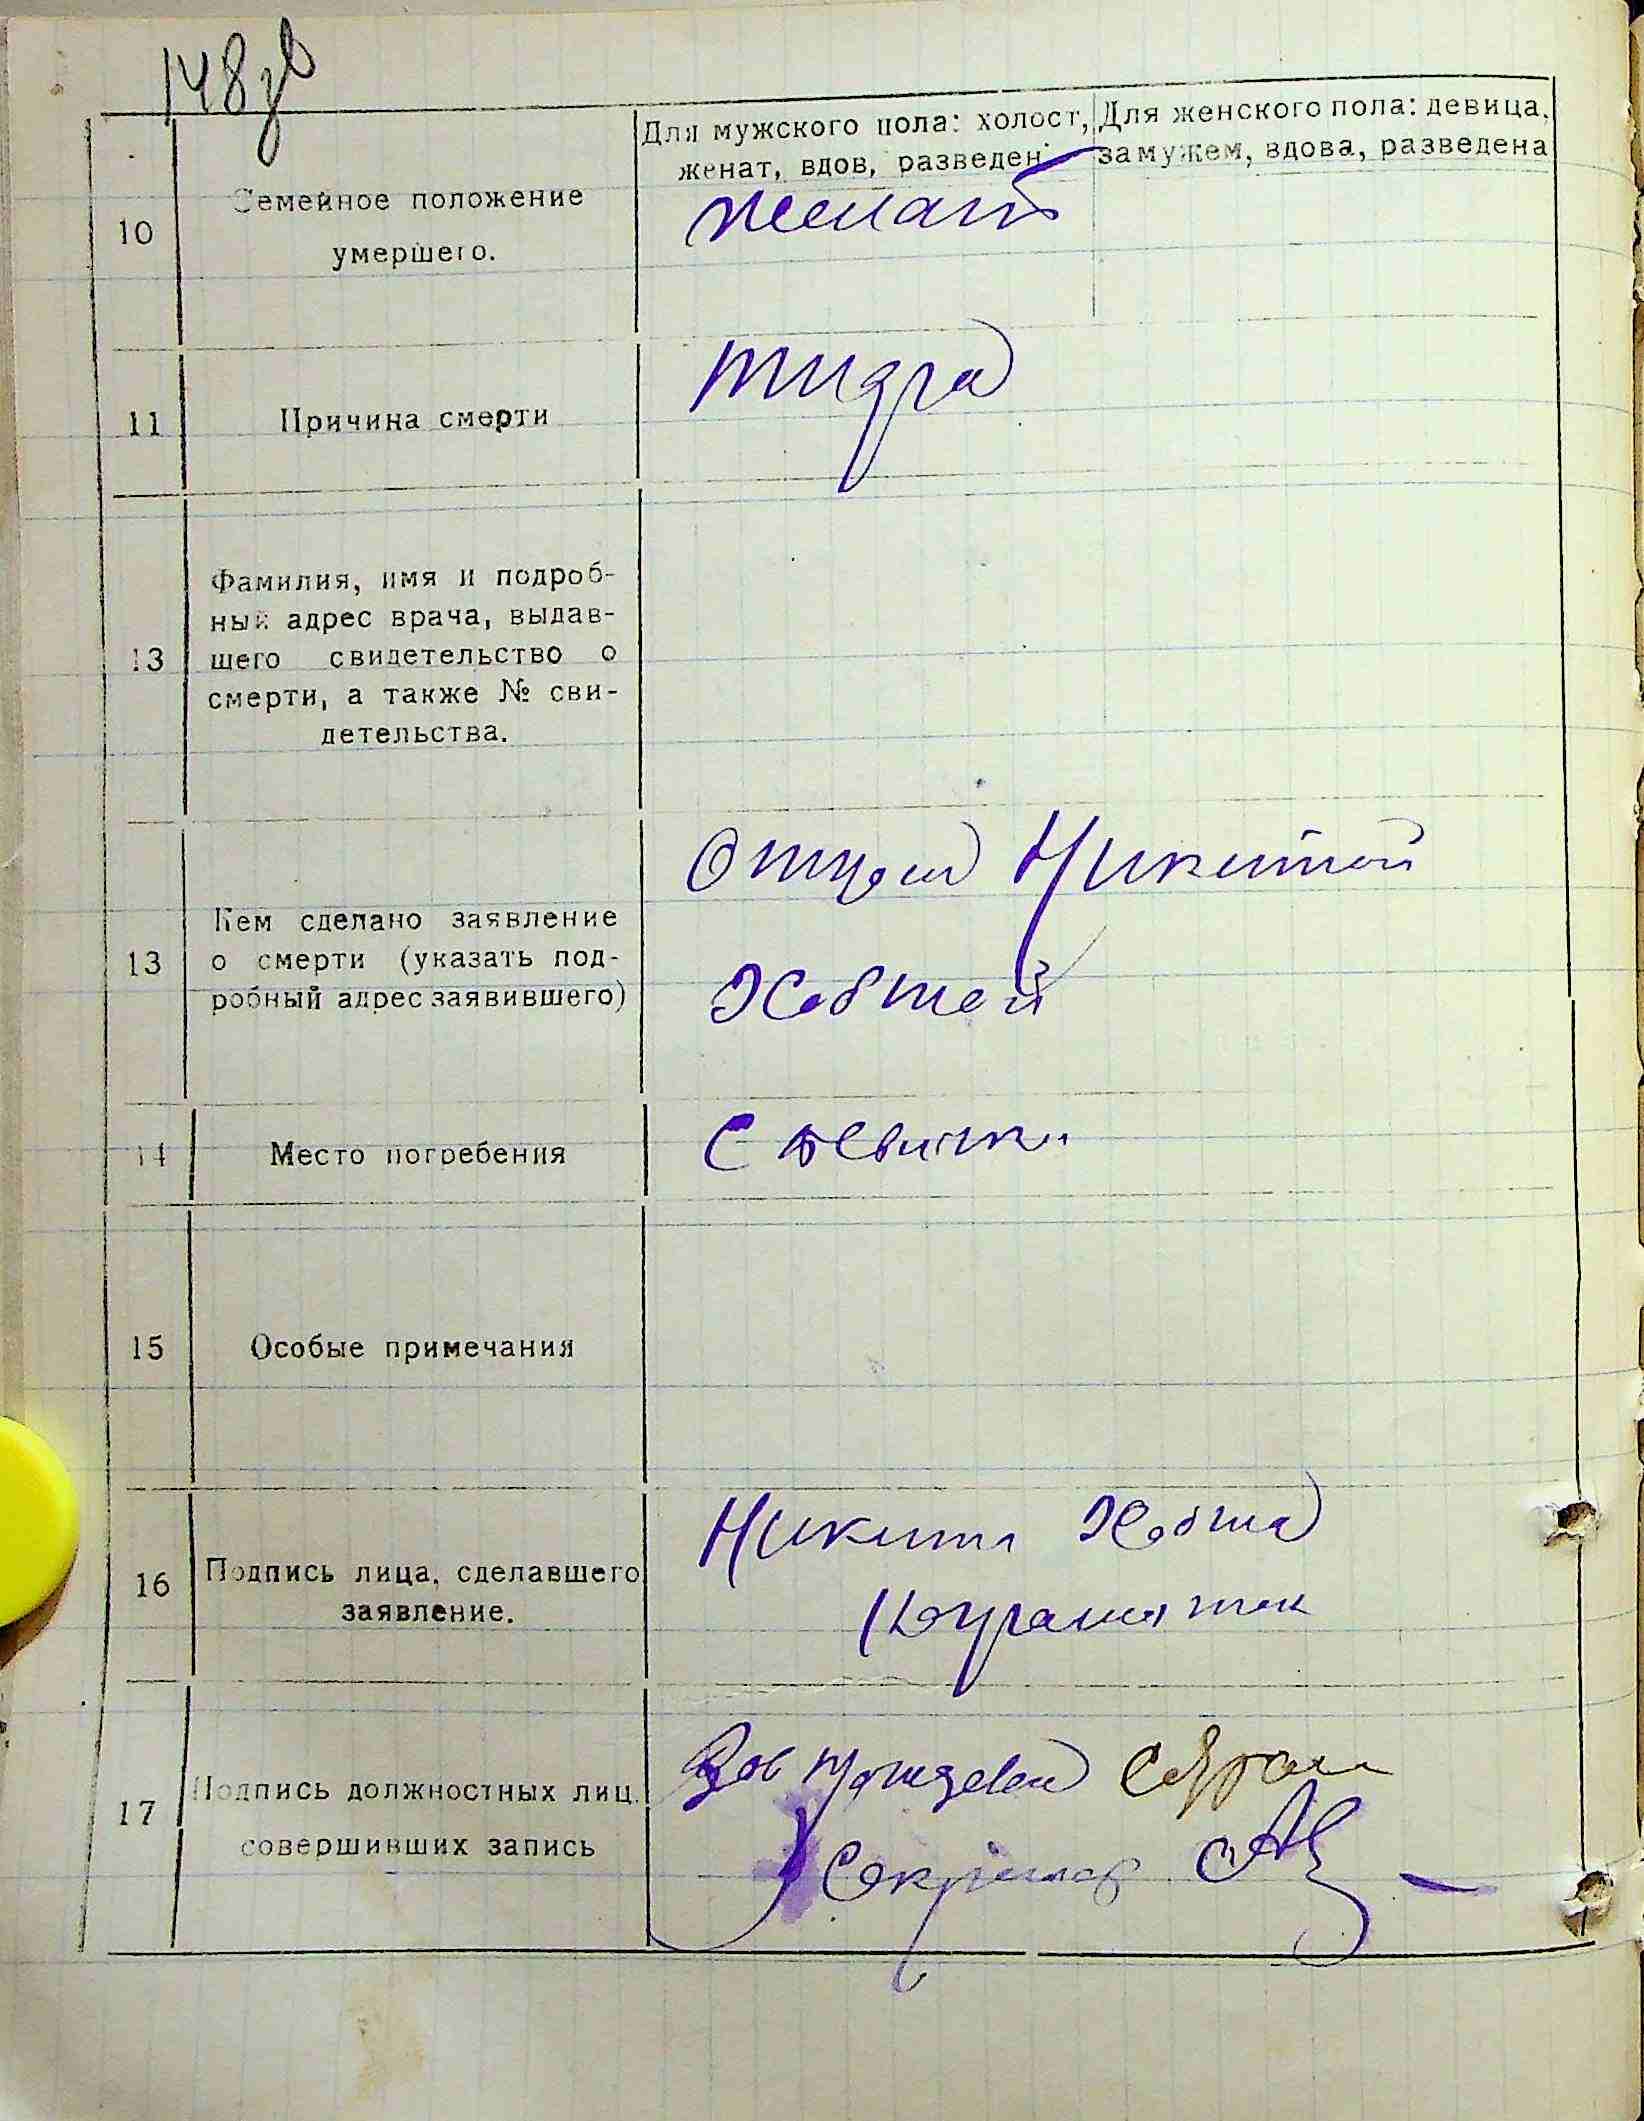 148зв
Для мужского пола: холост,
женат, вдов, разведен
Для женского пола: девица,
замужем, вдова, разведена
10
Семейное положение
умершего.
женат
11
Причина смерти
13
Фамилия, имя и подроб-
ный адрес врача, выдав-
шего свидетельство о
смерти, а также № сви-
детельства.
13
Кем сделано заявление
о смерти (указать под-
робный адрес заявившего)
Отцом Никитой
Ховтой
14
Место погребения
С
15
Особые примечания
16
Подпись лица, сделавшего
заявление.
Никита Ховта
17
Подпись должностных лиц,
совершивших запись
Зав
Секретар